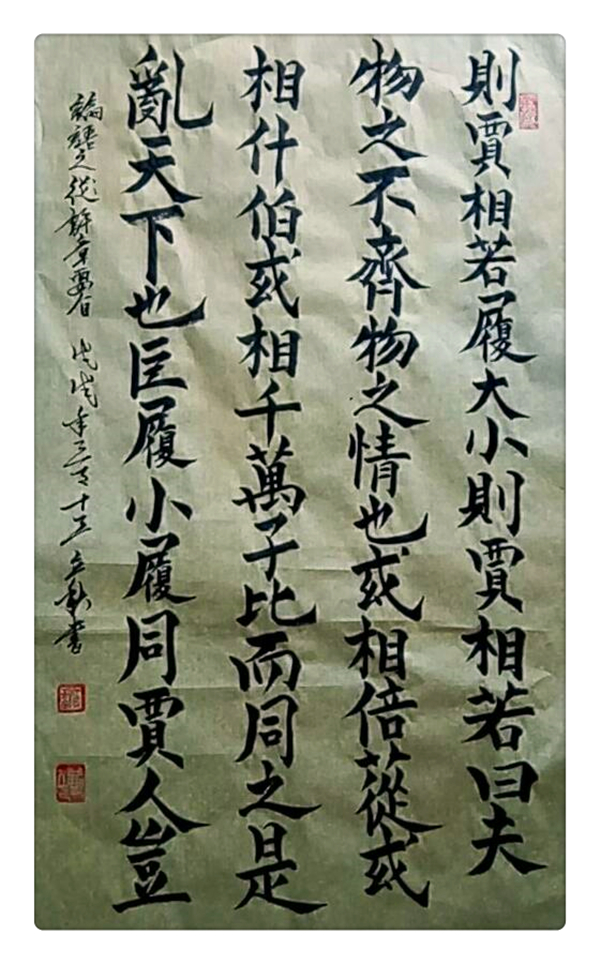 則賈相若履大小則賈相若曰夫
物之不齊物之情也或相倍蓰或
相什伯或相千萬子比而同之是
亂天下也巨履小履同賈人豈
語之從許章 戊戌年三月十三 書